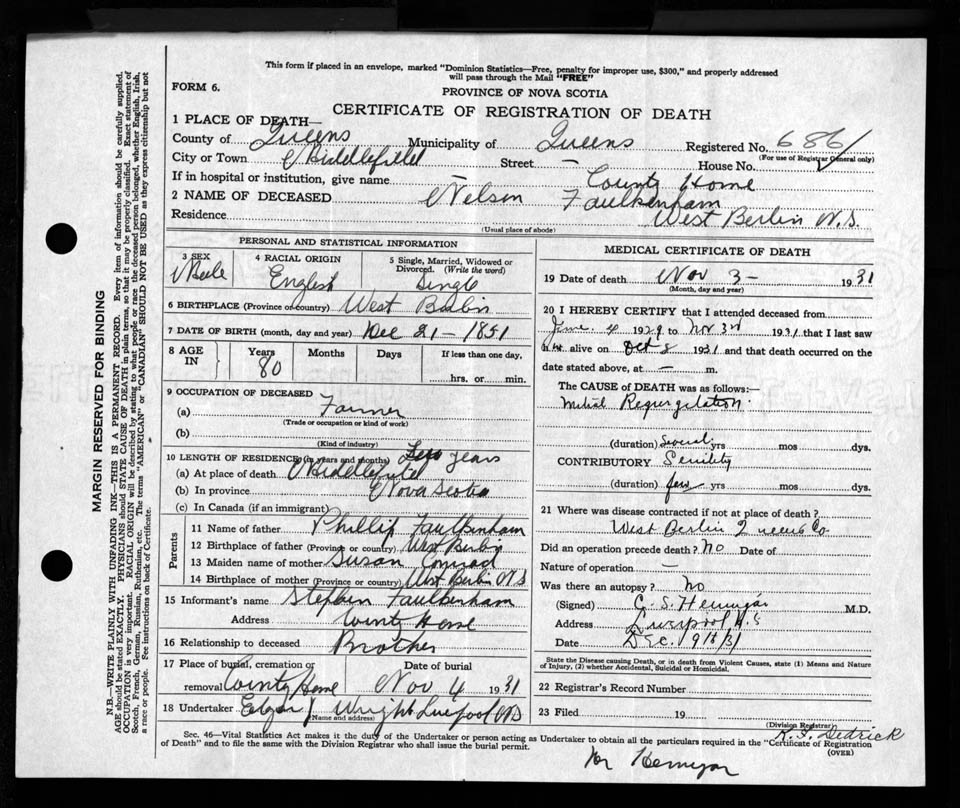 This form if placed in an envelope, marked "Dominion Statistics—Free, penalty for improper use, $300," and properly addressed
will pass through the Mail "FREE"
FORM 6.
PROVINCE OF NOVA SCOTIA
CERTIFICATE OF REGISTRATION OF DEATH
1 PLACE OF DEATH—
County of Queens Municipality of Queens Registered No. 6861
(For use of Registrar General only)
City or Town Middlefield Street — House No.
If in hospital or institution, give name — County Home
2 NAME OF DECEASED Nelson Faulkenham
Residence West Berlin N.S.
(Usual place of abode)
PERSONAL AND STATISTICAL INFORMATION
3 SEX Male
4 RACIAL ORIGIN English
5 Single, Married, Widowed or Divorced. (Write the word) Single
6 BIRTHPLACE (Province or country) West Berlin
7 DATE OF BIRTH (month, day and year) Dec 21 – 1851
8 AGE IN Years 80 Months Days If less than one day,
hrs. or min.
9 OCCUPATION OF DECEASED
(a) Farmer
(Trade or occupation or kind of work)
(b)
(Kind of industry)
10 LENGTH OF RESIDENCE (in years and months) years
(a) At place of death Middlefield
(b) In province Nova Scotia
(c) In Canada (if an immigrant)
Parents
11 Name of father Phillip Faulkenham
12 Birthplace of father (Province or country) West Berlin
13 Maiden name of mother Susan Conrad
14 Birthplace of mother (Province or country) West Berlin NS
15 Informant's name Stephen Faulkenham
Address County Home
16 Relationship to deceased Brother
17 Place of burial, cremation or removal County Home
Date of burial Nov 4 1931
18 Undertaker Edgar J Wright Liverpool NS
(Name and address)
MEDICAL CERTIFICATE OF DEATH
19 Date of death Nov 3 – 1931
(Month, day and year)
20 I HEREBY CERTIFY that I attended deceased from
June 4 1929 to Nov 3rd 1931 that I last saw
him alive on Oct 8 1931 and that death occurred on the
date stated above, at — m.
The CAUSE of DEATH was as follows:—
Mitral Regurgitation
(duration) Several yrs mos dys.
CONTRIBUTORY Senility
(duration) few yrs mos dys.
21 Where was disease contracted if not at place of death?
West Berlin Queens Co
Did an operation precede death? No Date of
Nature of operation —
Was there an autopsy? No
(Signed) M.D.
Address Liverpool N.S
Date Dec. 9th/31
State the Disease causing Death, or in death from Violent Causes, state (1) Means and Nature
of Injury, (2) whether Accidental, Suicidal or Homicidal.
22 Registrar's Record Number
23 Filed 19
(Division Registrar)
Sec. 46—Vital Statistics Act makes it the duty of the Undertaker or person acting as Undertaker to obtain all the particulars required in the "Certificate of Registration
of Death" and to file the same with the Division Registrar who shall issue the burial permit.
(OVER)
MARGIN RESERVED FOR BINDING
N.B.—WRITE PLAINLY WITH UNFADING INK—THIS IS A PERMANENT RECORD. Every item of information should be carefully supplied.
AGE should be stated EXACTLY. PHYSICIANS should STATE CAUSE OF DEATH in plain terms, so that it may be properly classified. Exact statement of
OCCUPATION is very important. RACIAL ORIGIN will be described by stating to what people or race the deceased person belonged, whether English, Irish,
Scotch, French, German, Russian, Ruthenian, etc. The terms "AMERICAN" or "CANADIAN" SHOULD NOT BE USED as they express citizenship but not
a race or people. See instructions on back of Certificate.